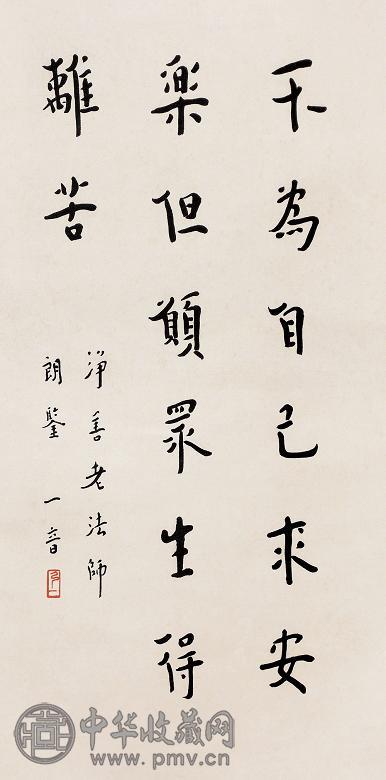 不為自己求安
楽但願眾生得
離苦
淨善老法師
朗鑒 一音
中华收藏网
www.pmv.cn